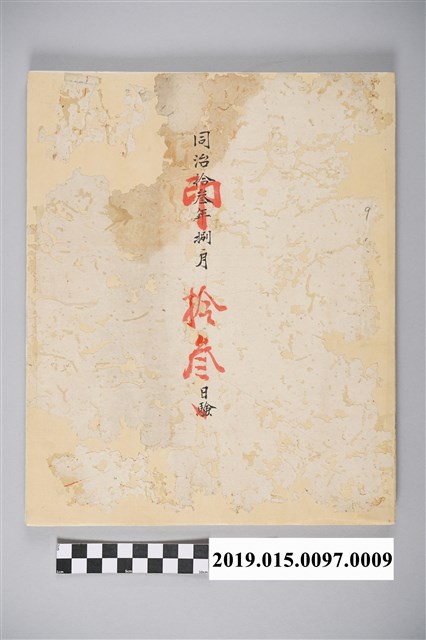 同治拾叁年捌月拾叁日驗
9
2019.015.0097.0009